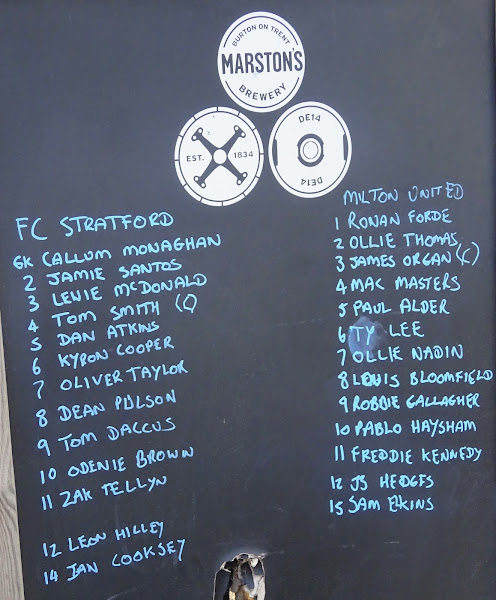 BURTON ON TRENT
MARSTON'S
BREWERY
EST. 1834
DE14
DE14
FC STRATFORD
GK CALLUM MONAGHAN
2 JAMIE SANTOS
3 LEWIE McDONALD
4 TOM SMITH (C)
5 DAN ATKINS
6 KYRON COOPER
7 OLIVER TAYLOR
8 DEAN PULSON
9 TOM DACCUS
10 ODENIE BROWN
11 ZAK TELLYN
12 LEON HILLEY
14 IAN COOKSEY
MILTON UNITED
1 RONAN FORDE
2 OLLIE THOMAS
3 JAMES ORGAN (C)
4 MAC MASTERS
5 PAUL ALDER
6 TY LEE
7 OLLIE NADIN
8 LOUIS BLOOMFIELD
9 ROBBIE GALLAGHER
10 PABLO HAYSHAM
11 FREDDIE KENNEDY
12 JS HEDGES
15 SAM ELKINS